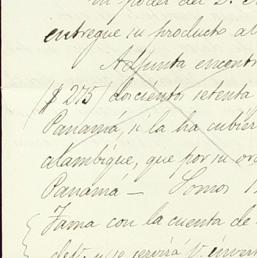 en poder del D.
entregue su producto al
Adjunta encontr
($ 275) docientos setenta
Panamá, si la ha cubier
alambique, que por su or
Panamá — Somos
Fama con la cuenta de
se servirá V. inver